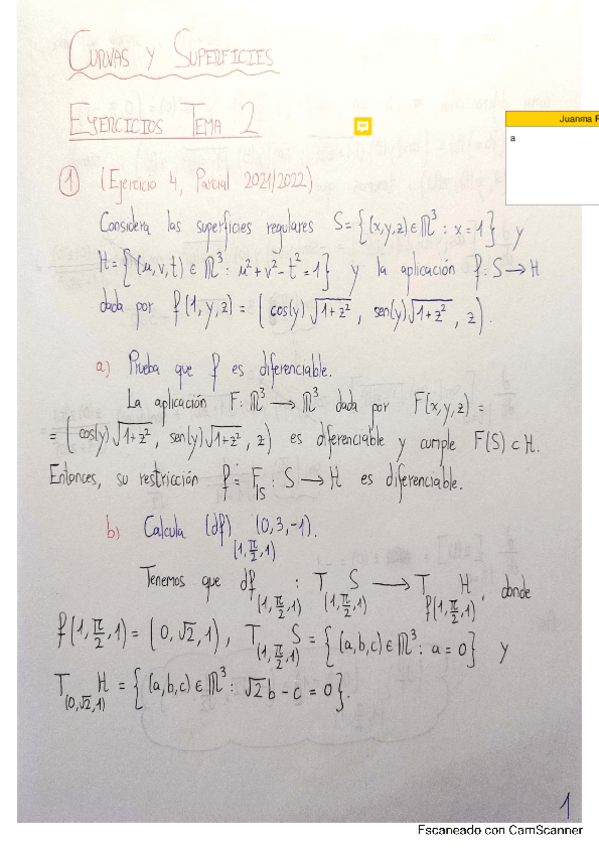 CURVAS Y SUPERFICIES
EJERCICIOS TEMA 2
Juanma F
a
1 (Ejercicio 4, Parcial 2021/2022)
Considera las superficies regulares S={(x,y,z)∈ℝ³: x=1} y
H={(u,v,t)∈ℝ³: u²+v²-t²=1} y la aplicación f: S→H
dada por f(1,y,z) = (cos(y)√(1+z²), sen(y)√(1+z²), z).
a) Prueba que f es diferenciable.
La aplicación F: ℝ³→ℝ³ dada por F(x,y,z) =
= (cos(y)√(1+z²), sen(y)√(1+z²), z) es diferenciable y cumple F(S)⊂H.
Entonces, su restricción f = F|S : S→H es diferenciable.
b) Calcula (df)(1,π/2,1) (0,3,-1).
Tenemos que df(1,π/2,1) : T(1,π/2,1) S → Tf(1,π/2,1) H, donde
f(1,π/2,1) = (0,√2,1), T(1,π/2,1) S = {(a,b,c)∈ℝ³: a=0} y
T(0,√2,1) H = {(a,b,c)∈ℝ³: √2b-c=0}.
1
Escaneado con CamScanner